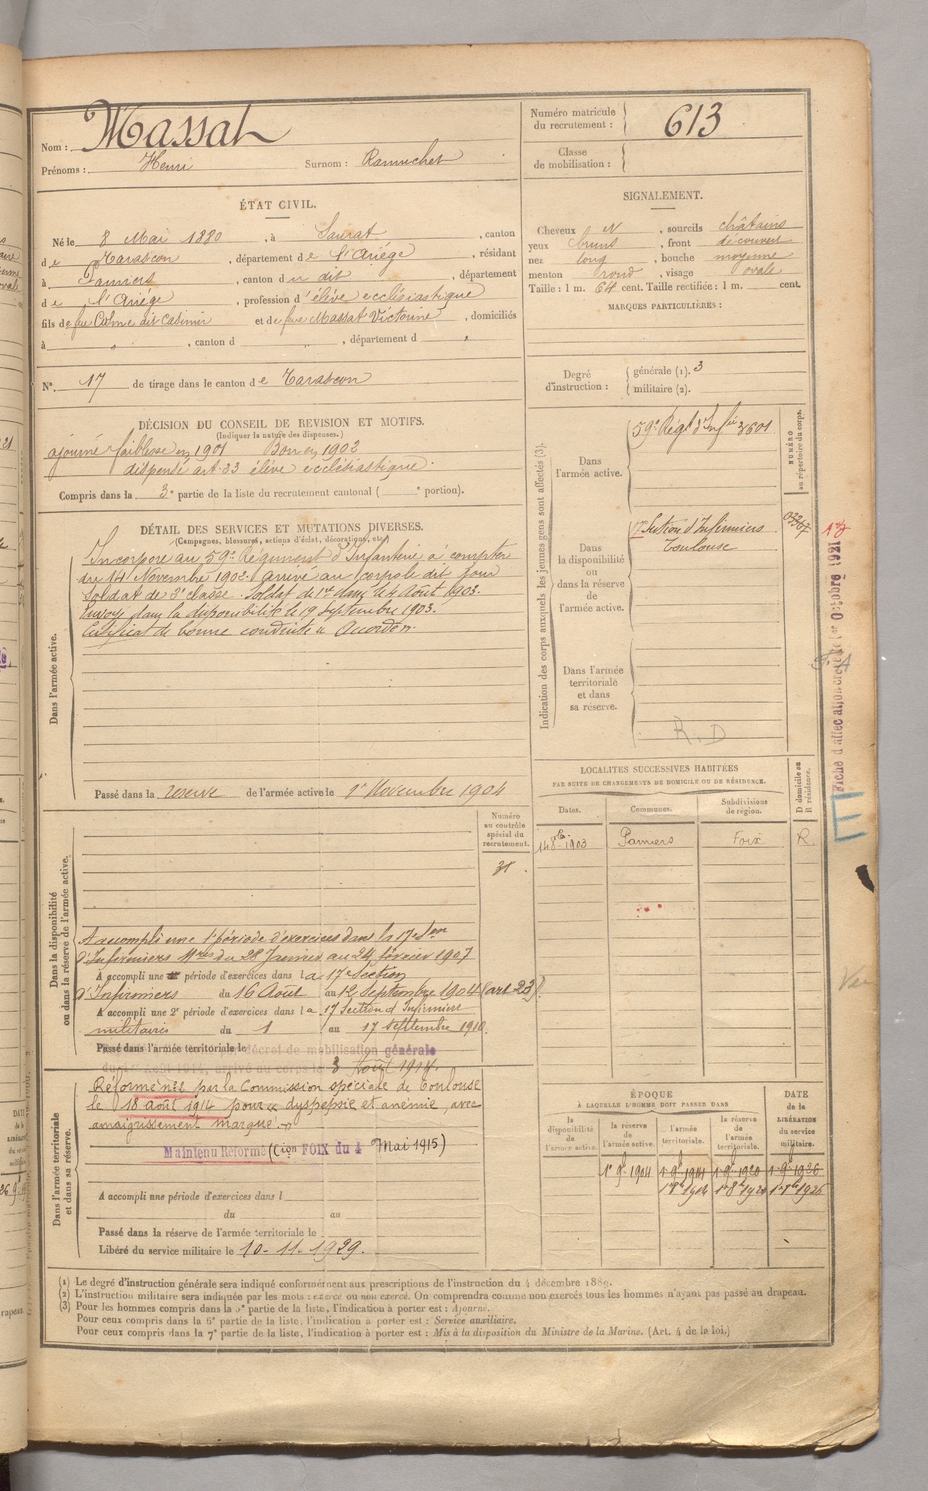 Nom : Massat
Prénoms : Henri Surnom : Ramuchet
Numéro matricule du recrutement : 613
Classe de mobilisation :
ÉTAT CIVIL.
Né le 8 Mai 1880, à Saurat, canton
de Tarascon, département de l'Ariège, résidant
à Pamiers, canton du dit, département
de l'Ariège, profession d'élève ecclésiastique
fils de feu Côme dit Casimir et de feue Massat Victorine, domiciliés
à " , canton d " , département d "
N° 17 de tirage dans le canton de Tarascon
SIGNALEMENT.
Cheveux N, sourcils châtains
yeux bruns, front découvert
nez long, bouche moyenne
menton rond, visage ovale
Taille : 1 m. 64 cent. Taille rectifiée : 1 m. cent.
MARQUES PARTICULIÈRES :
Degré d'instruction : générale (1). 3
militaire (2).
DÉCISION DU CONSEIL DE REVISION ET MOTIFS.
(Indiquer la nature des dispenses.)
ajourné faiblesse en 1901 Bon en 1902
dispensé art. 23 élève ecclésiastique.
Compris dans la 3e partie de la liste du recrutement cantonal ( e portion).
DÉTAIL DES SERVICES ET MUTATIONS DIVERSES.
(Campagnes, blessures, actions d'éclat, décorations, etc.)
Dans l'armée active.
Incorporé au 59e Régiment d'Infanterie à compter
du 14 Novembre 1902. Arrivé au corps le dit jour
Soldat de 2e classe. Soldat de 1re classe le 4 Août 1903.
Envoyé dans la disponibilité le 19 Septembre 1903.
Certificat de bonne conduite « Accordé ».
Passé dans la réserve de l'armée active le 1er Novembre 1904
Indication des corps auxquels les jeunes gens sont affectés (3).
NUMÉRO au répertoire du corps.
Dans l'armée active.
59e Régt d'Infie 3601
Dans la disponibilité ou dans la réserve de l'armée active.
17e Section d'Infirmiers
Toulouse
Dans l'armée territoriale et dans sa réserve.
R.D
Fiche d'affectation créée le 1er Octobre 1921
LOCALITÉS SUCCESSIVES HABITÉES
PAR SUITE DE CHANGEMENTS DE DOMICILE OU DE RÉSIDENCE.
Dates. Communes. Subdivisions de région. D domicile ou R résidence.
14 8bre 1903 Pamiers Foix R.
Numéro au contrôle spécial du recrutement.
Dans la disponibilité ou dans la réserve de l'armée active.
A accompli une 1e période d'exercices dans la 17e Son
d'Infirmiers Mres du 28 Janvier au 24 février 1907
A accompli une période d'exercices dans la 17e Section
d'Infirmiers du 16 Août au 12 Septembre 1904 (art 23).
A accompli une 2e période d'exercices dans la 17 Section d'Infirmiers
militaires du 1 au 17 septembre 1910.
Passé dans l'armée territoriale le
décret de mobilisation générale
du 1er Août 1914, arrivé au corps le 3 Août 1914.
Dans l'armée territoriale et dans sa réserve.
Réformé n°2 par la Commission spéciale de Toulouse
le 18 août 1914 pour « dyspepsie et anémie, avec
amaigrissement marqué. »
Maintenu Réformé (Cion FOIX du 4 Mai 1915)
A accompli une période d'exercices dans l
du au
Passé dans la réserve de l'armée territoriale le
Libéré du service militaire le 10-11-1929.
ÉPOQUE
A LAQUELLE L'HOMME DOIT PASSER DANS
la disponibilité de l'armée active. la réserve de l'armée active. l'armée territoriale. la réserve de l'armée territoriale.
DATE de la LIBÉRATION du service militaire.
1er 9bre 1904 1er 9bre 1914 1er 9bre 1920 1er 9bre 1926
(1) Le degré d'instruction générale sera indiqué conformément aux prescriptions de l'instruction du 4 décembre 1889.
(2) L'instruction militaire sera indiquée par les mots : exercé ou non exercé. On comprendra comme non exercés tous les hommes n'ayant pas passé au drapeau.
(3) Pour les hommes compris dans la 5e partie de la liste, l'indication à porter est : Ajourné.
Pour ceux compris dans la 6e partie de la liste, l'indication à porter est : Service auxiliaire.
Pour ceux compris dans la 7e partie de la liste, l'indication à porter est : Mis à la disposition du Ministre de la Marine. (Art. 4 de la loi.)